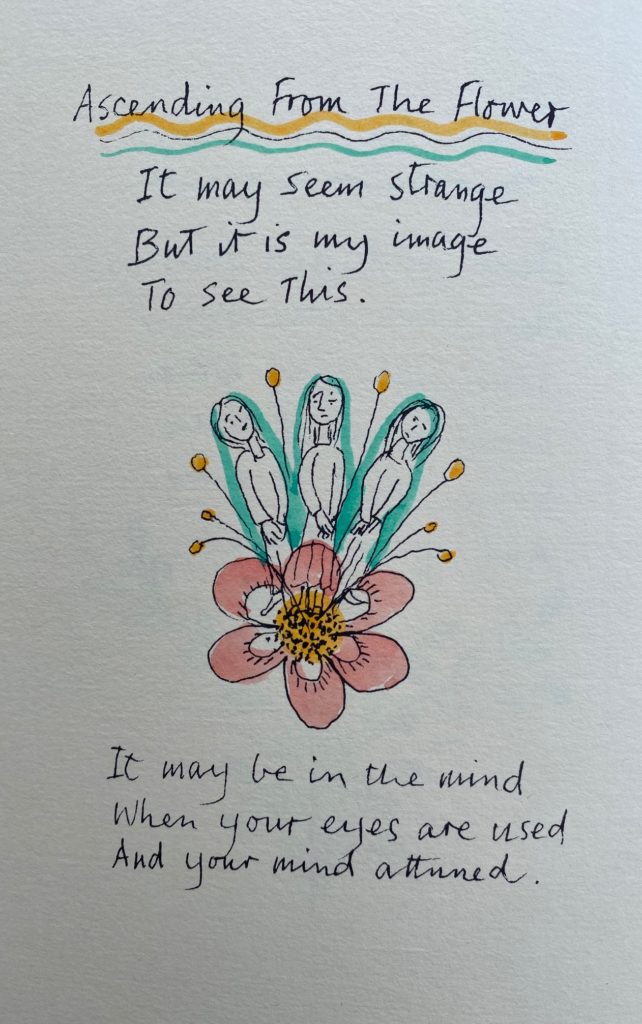 Ascending From The Flower
It may seem strange
But it is my image
To see This.
It may be in the mind
When your eyes are used
And your mind attuned.